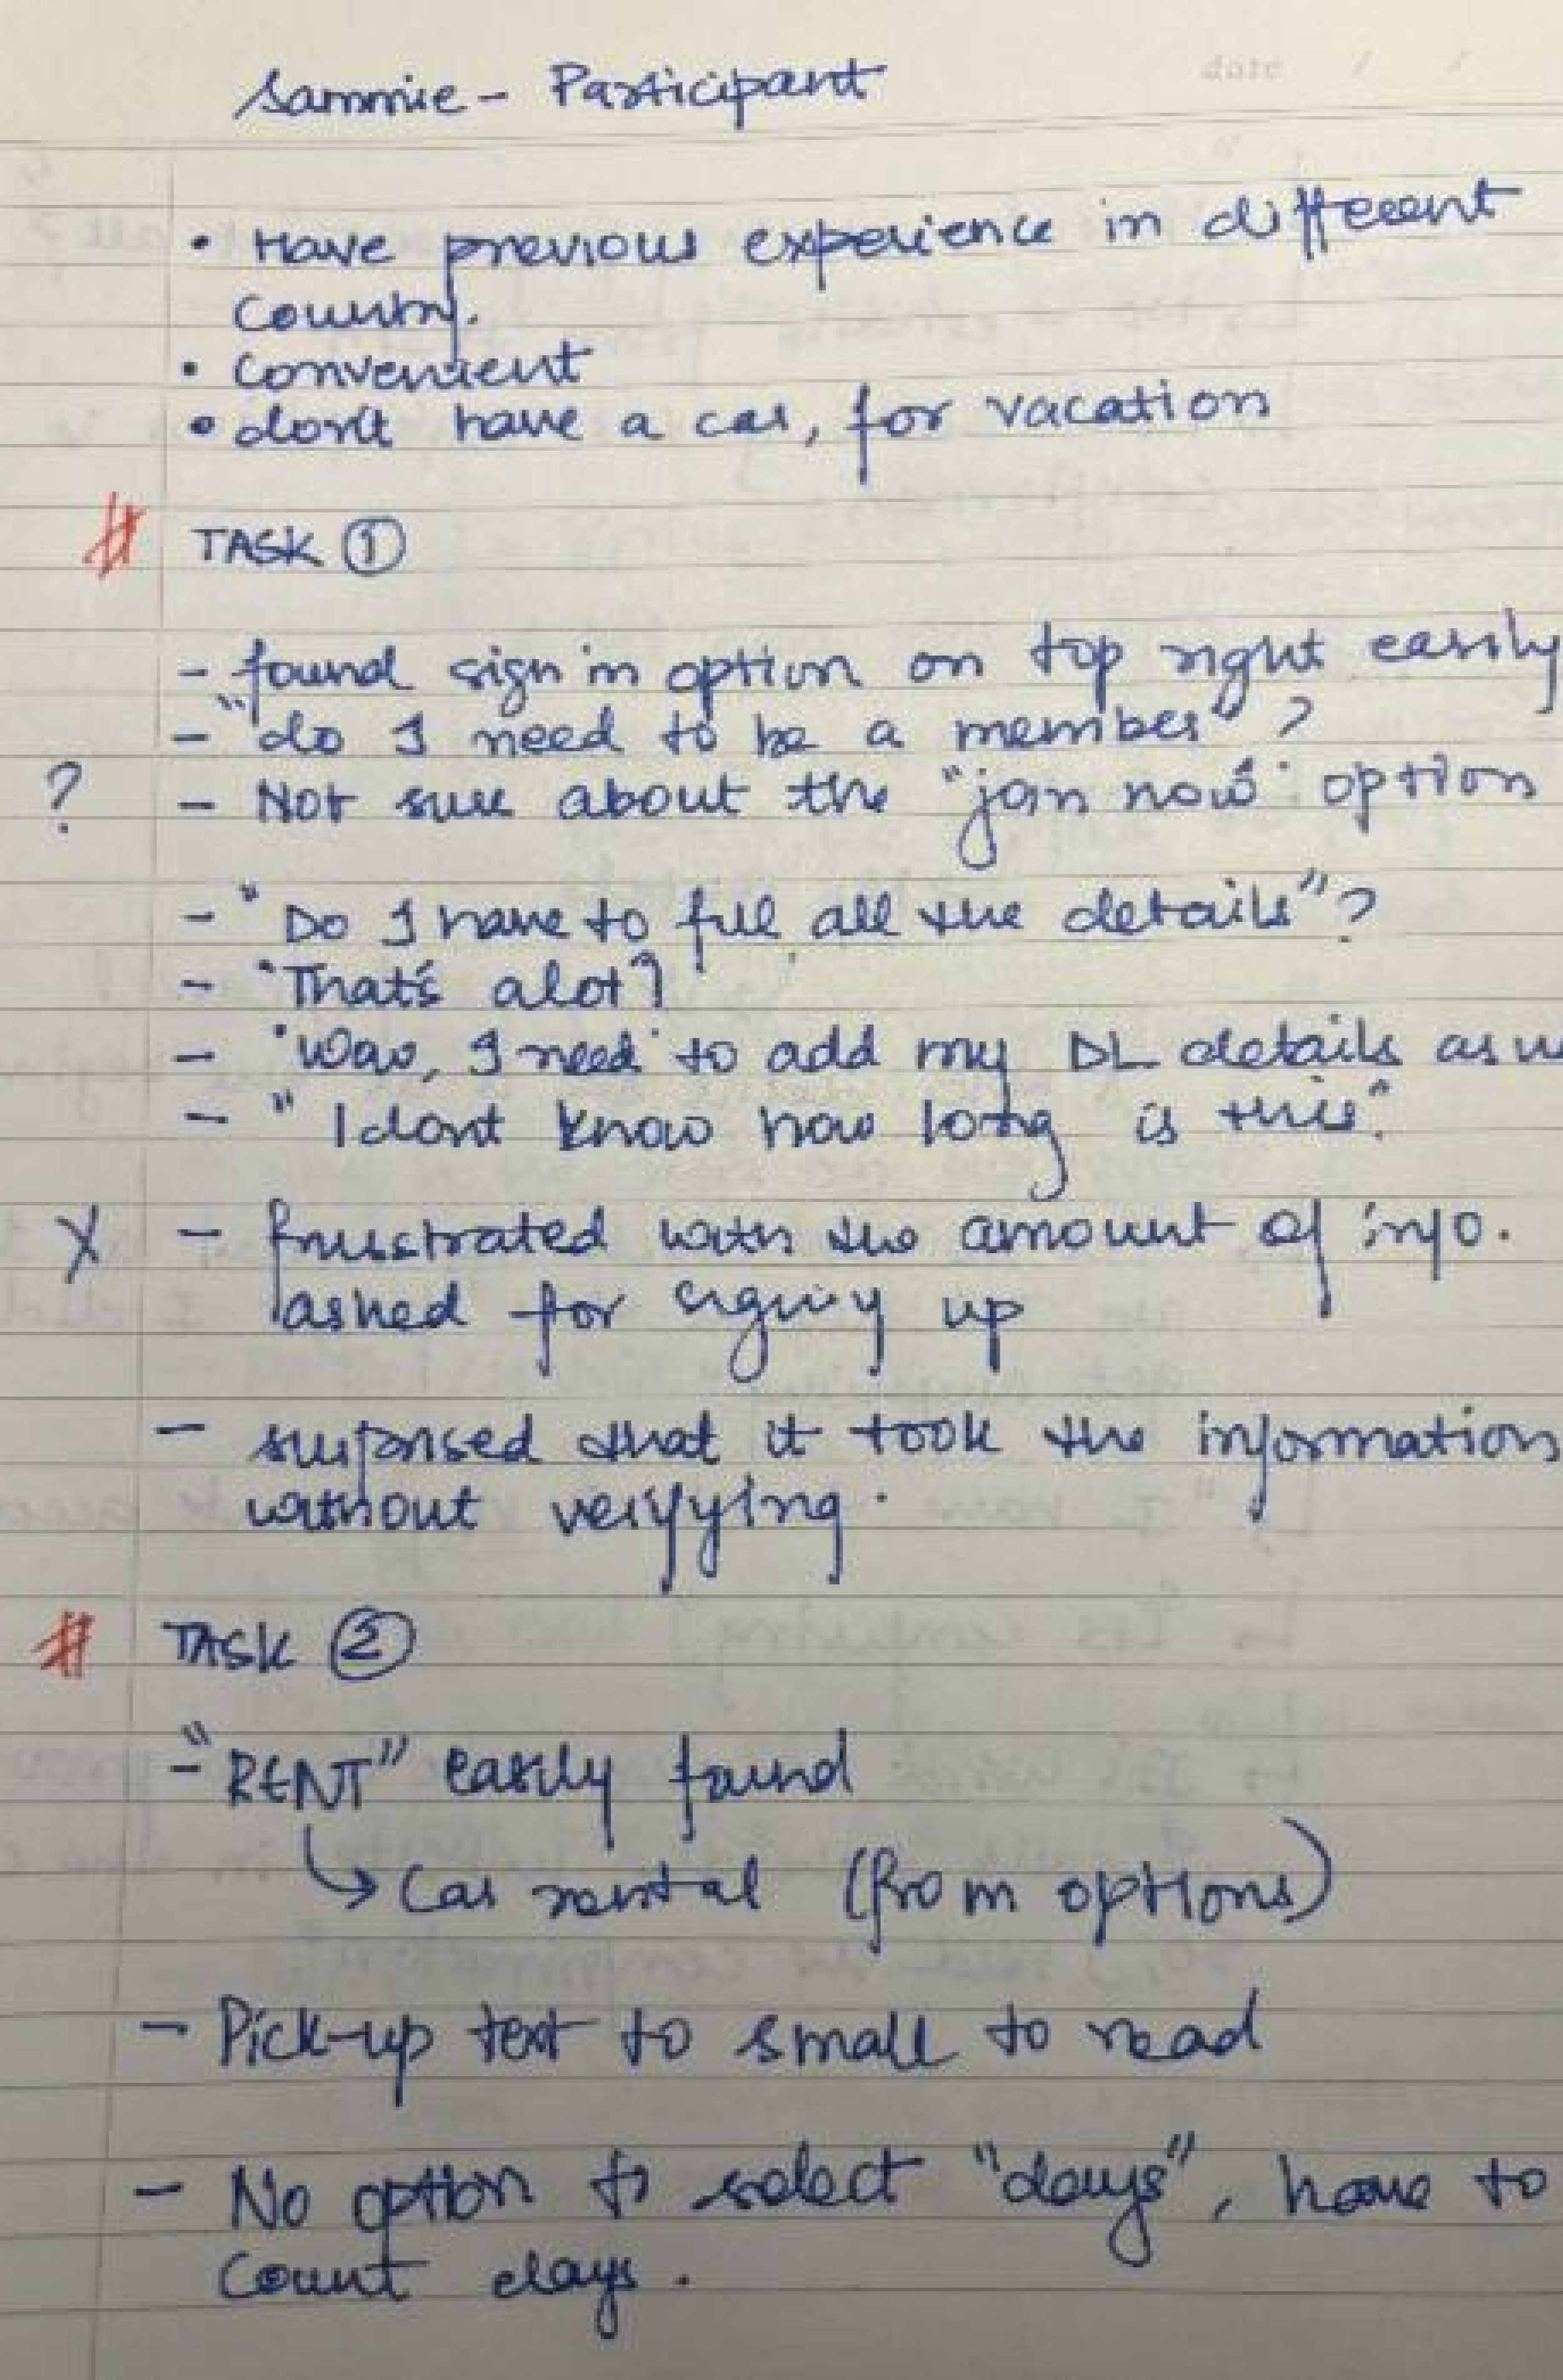 date / /
Sammie - Participant
• Have previous experience in different
Country.
• Convenient
• don't have a car, for vacation
# TASK ①
- found sign in option on top right easily
- "do I need to be a member" ?
? - Not sure about the "join now" option
- "Do I have to fill all the details"?
- "That's alot"
- "Wow, I need to add my DL details as w
- "I dont know how long is this".
X - frustrated with the amount of info.
asked for signing up
- surprised that it took the information
without verifying.
# TASK ②
- "RENT" easily found
↳ Car rental (from options)
- Pick-up text to small to read
- No option to select "days", have to
Count days.